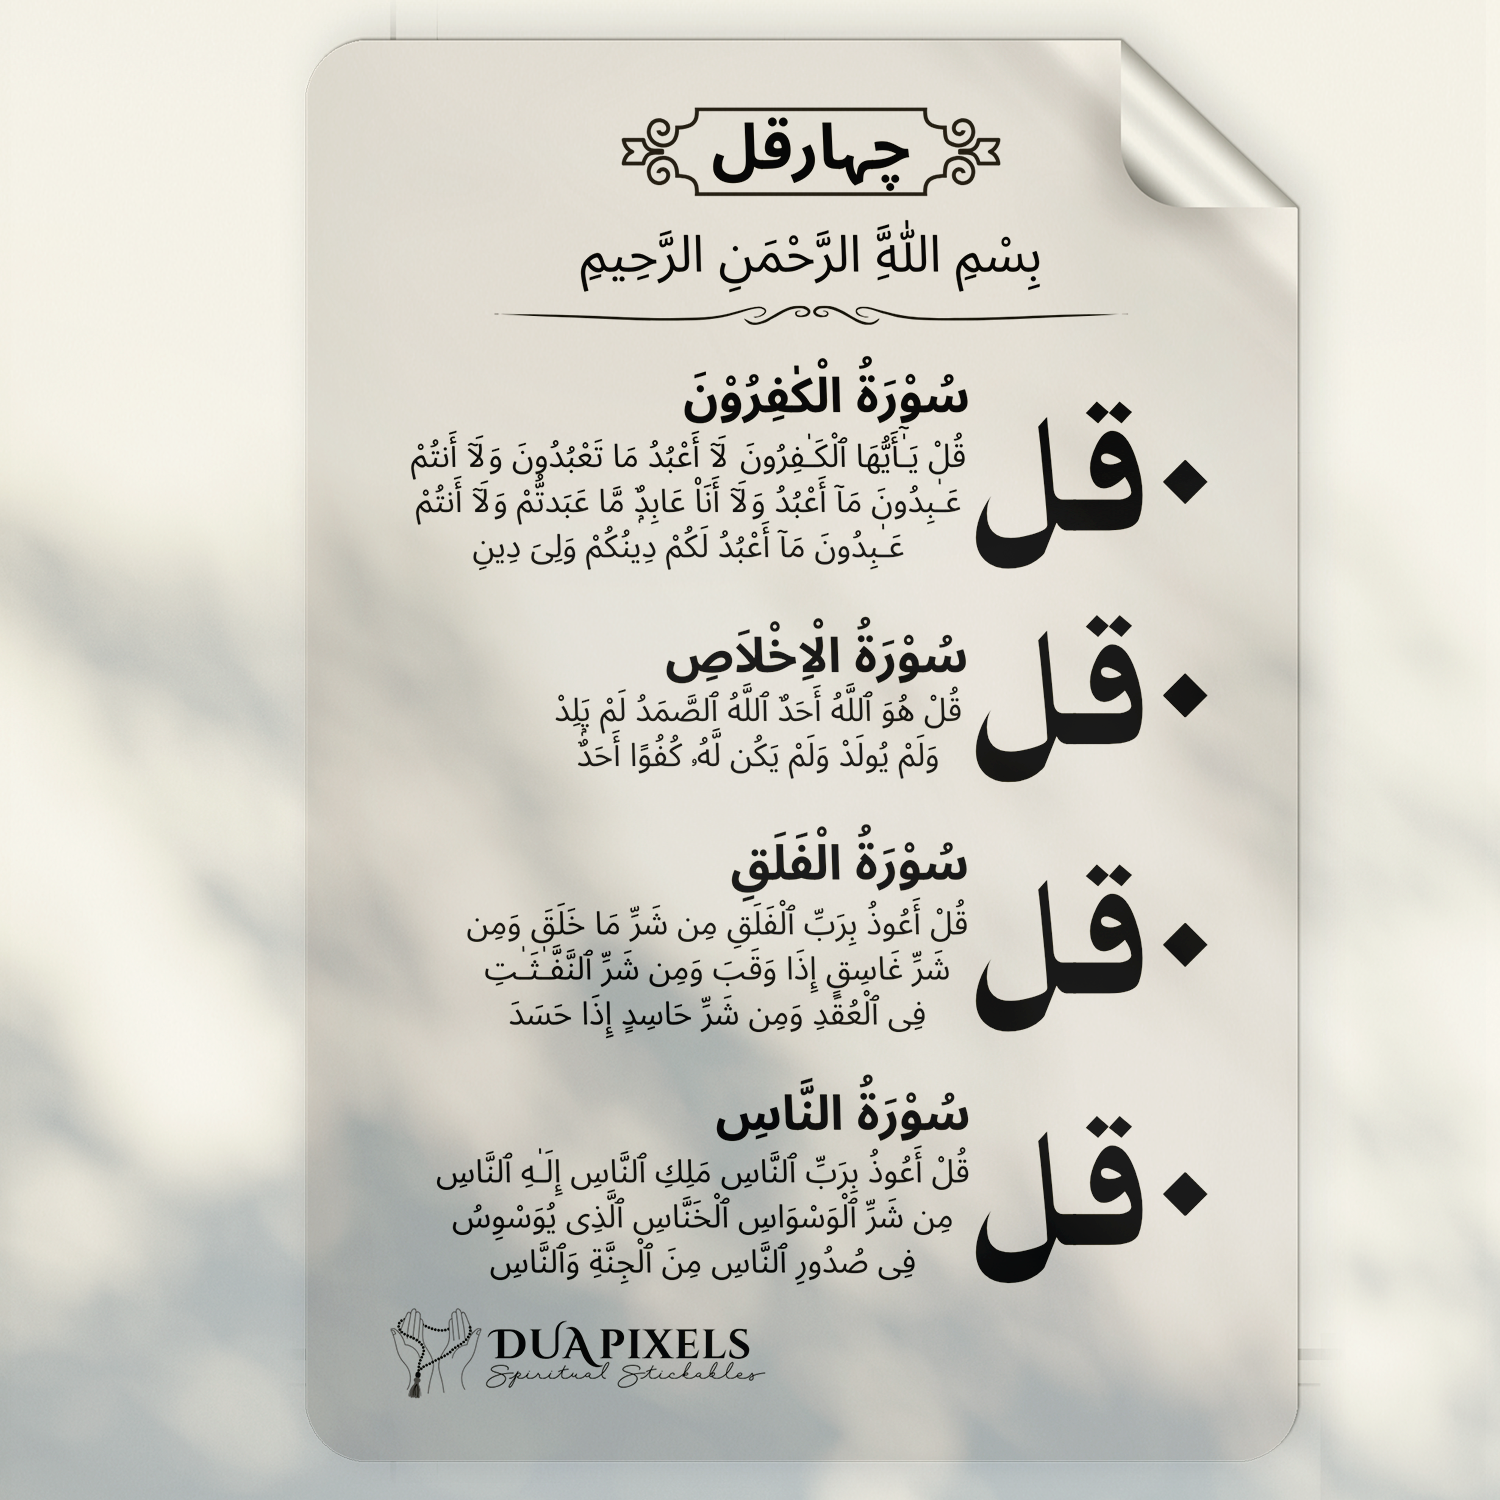 چہارقل
بِسْمِ اللَّهِ الرَّحْمَنِ الرَّحِيمِ
قل
سُوْرَةُ الْكٰفِرُوْنَ
قُلْ يَـٰٓأَيُّهَا ٱلْكَـٰفِرُونَ لَآ أَعْبُدُ مَا تَعْبُدُونَ وَلَآ أَنتُمْ
عَـٰبِدُونَ مَآ أَعْبُدُ وَلَآ أَنَا۠ عَابِدٌ مَّا عَبَدتُّمْ وَلَآ أَنتُمْ
عَـٰبِدُونَ مَآ أَعْبُدُ لَكُمْ دِينُكُمْ وَلِىَ دِينِ
قل
سُوْرَةُ الْاِخْلَاصِ
قُلْ هُوَ ٱللَّهُ أَحَدٌ ٱللَّهُ ٱلصَّمَدُ لَمْ يَلِدْ
وَلَمْ يُولَدْ وَلَمْ يَكُن لَّهُۥ كُفُوًا أَحَدٌۢ
قل
سُوْرَةُ الْفَلَقِ
قُلْ أَعُوذُ بِرَبِّ ٱلْفَلَقِ مِن شَرِّ مَا خَلَقَ وَمِن
شَرِّ غَاسِقٍ إِذَا وَقَبَ وَمِن شَرِّ ٱلنَّفَّـٰثَـٰتِ
فِى ٱلْعُقَدِ وَمِن شَرِّ حَاسِدٍ إِذَا حَسَدَ
قل
سُوْرَةُ النَّاسِ
قُلْ أَعُوذُ بِرَبِّ ٱلنَّاسِ مَلِكِ ٱلنَّاسِ إِلَـٰهِ ٱلنَّاسِ
مِن شَرِّ ٱلْوَسْوَاسِ ٱلْخَنَّاسِ ٱلَّذِى يُوَسْوِسُ
فِى صُدُورِ ٱلنَّاسِ مِنَ ٱلْجِنَّةِ وَٱلنَّاسِ
DUA PIXELS
Spiritual Stickables